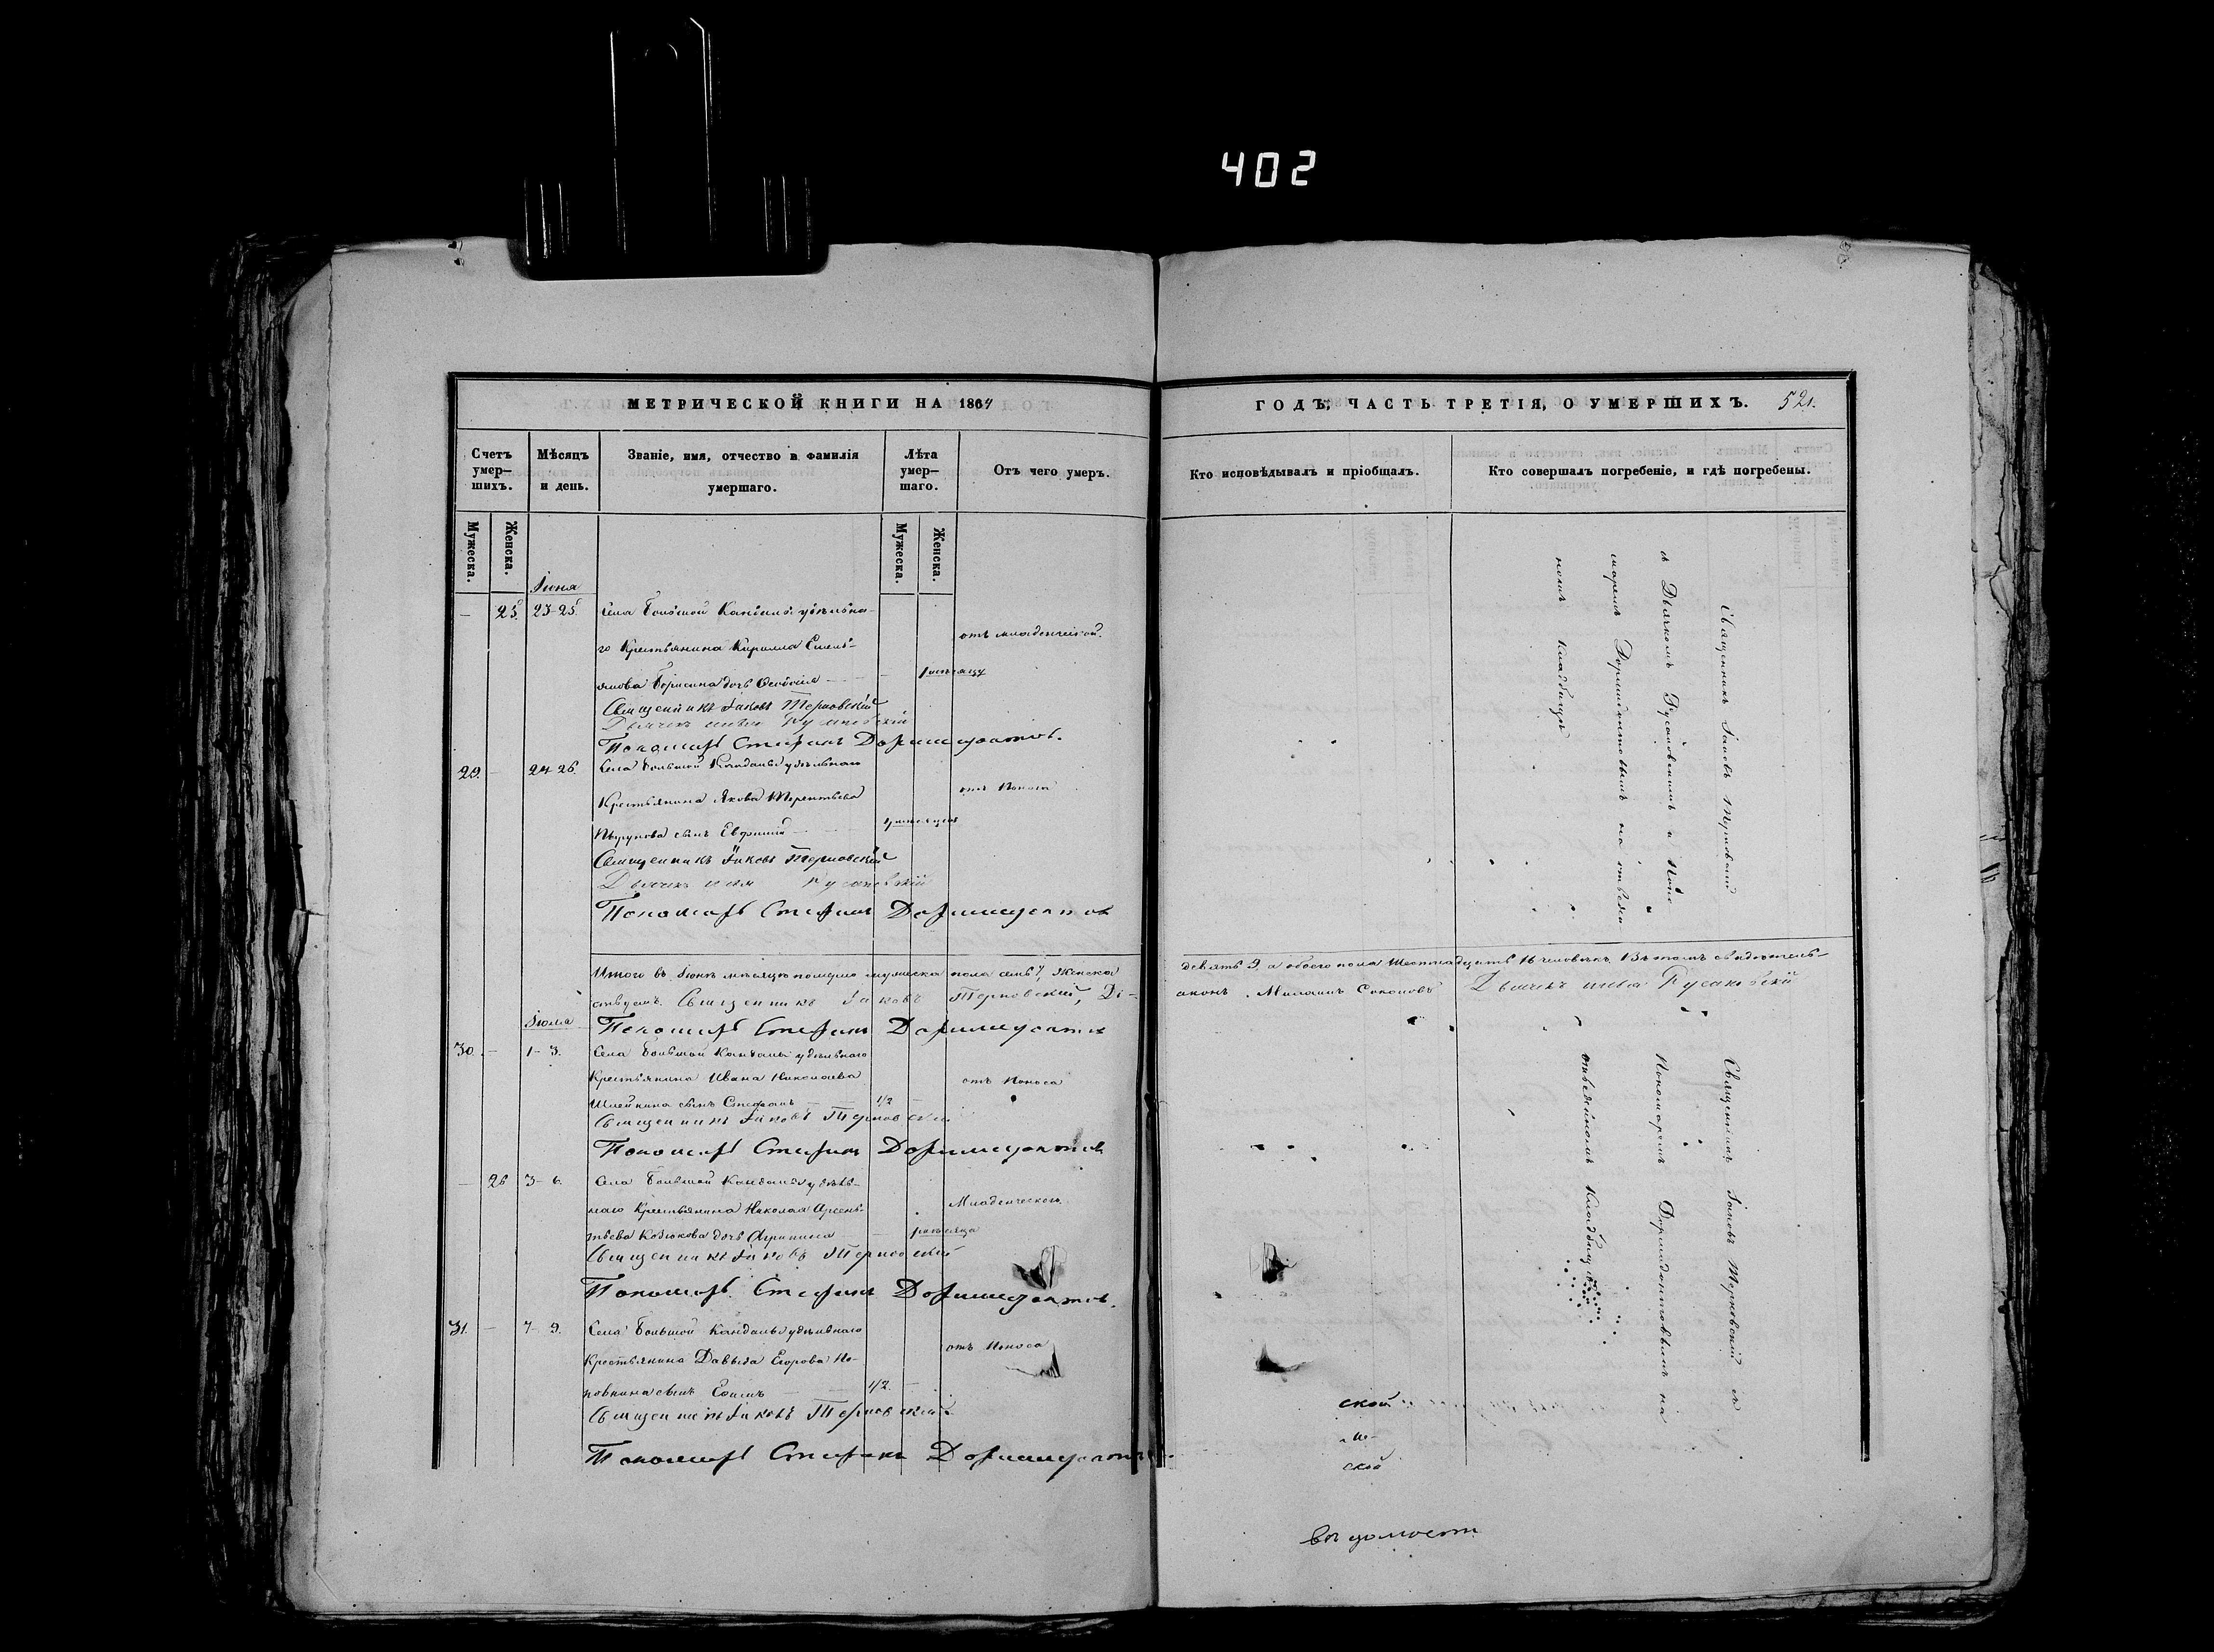 402
МЕТРИЧЕСКОЙ КНИГИ НА 1864
Счетъ умер-шихъ.
Мѣсяцъ и день.
Званіе, имя, отчество и фамилія умершаго.
Лѣта умер-шаго.
Отъ чего умеръ.
Мужеска.
Женска.
Мужеска.
Женска.
Іюня
25. 23-25. Села Большой Кандалы удѣльна-
го Крестьянина Кирилла Емель-
отъ младенческой.
янова Борисина дочь
Священникъ Іаковъ Терновскій
Дьячекъ Русановскій
Пономарь Стефанъ Доримедонтовъ.
29. 24-26. Села Большой Кандалы удѣльнаго
Крестьянина Якова Терентьева
отъ Поноса
сынъ Евфимій
Священникъ Іаковъ Терновскій
Дьячекъ Русановскій
Пономарь Стефанъ Доримедонтовъ
Итого въ Іюнѣ мѣсяцѣ померло мужеска пола семь 7, Женска
ствуемъ. Священникъ Іаковъ Терновскій, Ді-
Іюля
Пономарь Стефанъ Доримедонтовъ
30. 1-3. Села Большой Кандалы удѣльнаго
Крестьянина Ивана Николаева
отъ Поноса
сынъ Стефанъ 1/2
Священникъ Іаковъ Терновскій
Пономарь Стефанъ Доримедонтовъ
26 3-6. Села Большой Кандалы удѣль-
наго Крестьянина Николая Арсень-
Младенческой
тьева Козюкова дочь Агрипина
Священникъ Іаковъ Терновскій
Пономарь Стефанъ Доримедонтовъ.
31. 7-9. Села Большой Кандалы удѣльнаго
Крестьянина Давыда Егорова По-
отъ Поноса
повкина сынъ 1/2.
Священникъ Іаковъ Терновскій
Пономарь Стефанъ Доримедонтовъ
ГОДЪ, ЧАСТЬ ТРЕТІЯ, О УМЕРШИХЪ. 521.
Кто исповѣдывалъ и пріобщалъ.
Кто совершалъ погребеніе, и гдѣ погребены.
Священникъ Іаковъ Терновскій
съ Дьячкомъ Русановскимъ и Поно
маремъ Доримедонтовымъ на отведен
номъ кладбищѣ
девять 9. а обоего пола Шестнадцать 16 человѣкъ. Въ томъ свидѣтель-
аконъ Соколовъ Дьячекъ Русановскій
Священникъ Іаковъ Терновскій съ
Пономаремъ Доримедонтовымъ на
отведенномъ Кладбищѣ
ской
ской